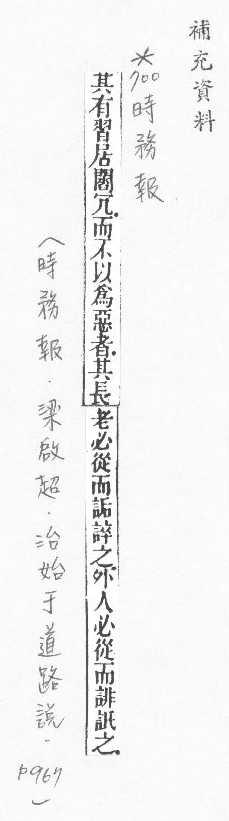 補充資料
*700時務報
其有習居闒冗.而不以爲惡者.其長老必從而詬誶之.外人必從而誹詆之.
(時務報.梁啟超.治始于道路說.p967)